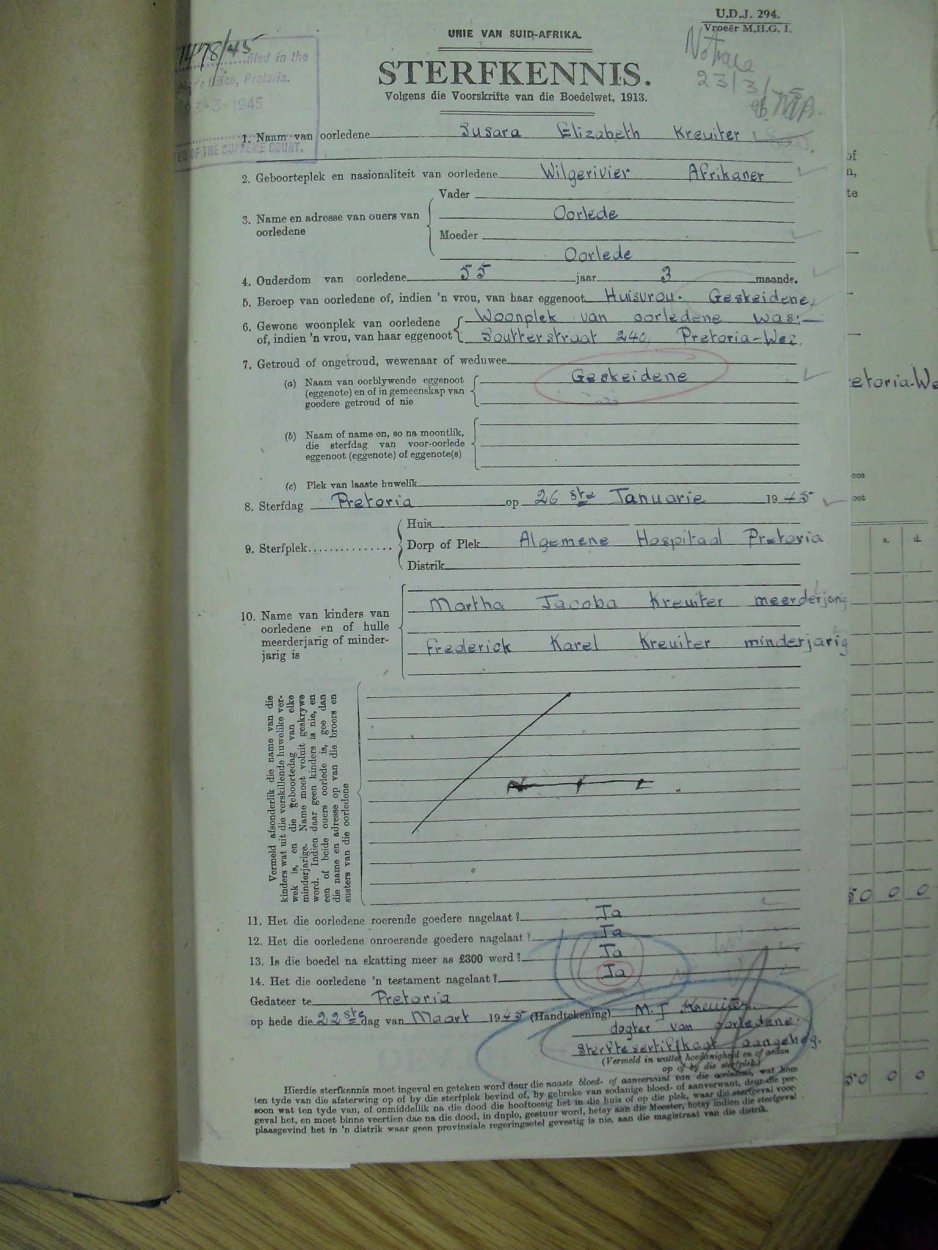 U.D.J. 294.
Vroeër M.H.G. 1.
UNIE VAN SUID-AFRIKA.
1478/45
STERFKENNIS.
Volgens die Voorskrifte van die Boedelwet, 1913.
23/3/45
1. Naam van oorledene Susara Elizabeth Kreuiter
2. Geboorteplek en nasionaliteit van oorledene Wilgerivier Afrikaner
3. Name en adresse van ouers van oorledene
Vader
Oorlede
Moeder
Oorlede
4. Ouderdom van oorledene 55 jaar 3 maande.
5. Beroep van oorledene of, indien 'n vrou, van haar eggenoot Huisvrou. Geskeidene.
6. Gewone woonplek van oorledene Woonplek van oorledene was:—
of, indien 'n vrou, van haar eggenoot Soutterstraat 240, Pretoria-Wes.
7. Getroud of ongetroud, wewenaar of weduwee
(a) Naam van oorblywende eggenoot Geskeidene
(eggenote) en of in gemeenskap van
goedere getroud of nie
(b) Naam of name en, so na moontlik,
die sterfdag van voor-oorlede
eggenoot (eggenote) of eggenote(s)
(c) Plek van laaste huwelik
8. Sterfdag Pretoria op 26 ste Januarie 1945
9. Sterfplek
Huis
Dorp of Plek Algemene Hospitaal Pretoria
Distrik
10. Name van kinders van
oorledene en of hulle
meerderjarig of minder-
jarig is
Martha Jacoba Kreuiter meerderjarig
Frederick Karel Kreuiter minderjarig
Vermeld afsonderlik die name van die
kinders wat uit die verskillende huwelike ver-
wek is, en die geboortedag van elke
minderjarige. Name moet voluit geskrywe
word. Indien daar geen kinders is nie, en
een of beide ouers oorlede is, gee dan
die name en adresse op van die broers en
susters van die oorledene
11. Het die oorledene roerende goedere nagelaat? Ja
12. Het die oorledene onroerende goedere nagelaat? Ja
13. Is die boedel na skatting meer as £300 werd? Ja
14. Het die oorledene 'n testament nagelaat? Ja
Gedateer te Pretoria
op hede die 22ste dag van Maart 1945 (Handtekening) M. J. Kreuiter.
dogter van oorledene.
Sterftesertifikaat aangeheg.
(Vermeld in watter hoedanigheid en of aldan
op of by die sterfplek)
Hierdie sterfkennis moet ingevul en geteken word deur die naaste bloed- of aanverwant van die oorledene, wat hom
ten tyde van die afsterwing op of by die sterfplek bevind of, by gebreke van sodanige bloed- of aanverwant, deur die per-
soon wat ten tyde van, of onmiddellik na die dood die hooftoesig het in die huis of op die plek, waar die sterfgeval voor-
geval het, en moet binne veertien dae na die dood, in duplo, gestuur word, hetsy aan die Meester, hetsy indien die sterfgeval
plaasgevind het in 'n distrik waar geen provinsiale regeringsetel gevestig is nie, aan die magistraat van die distrik.
etoria-We
s. d.
50 0 0
50 0 0